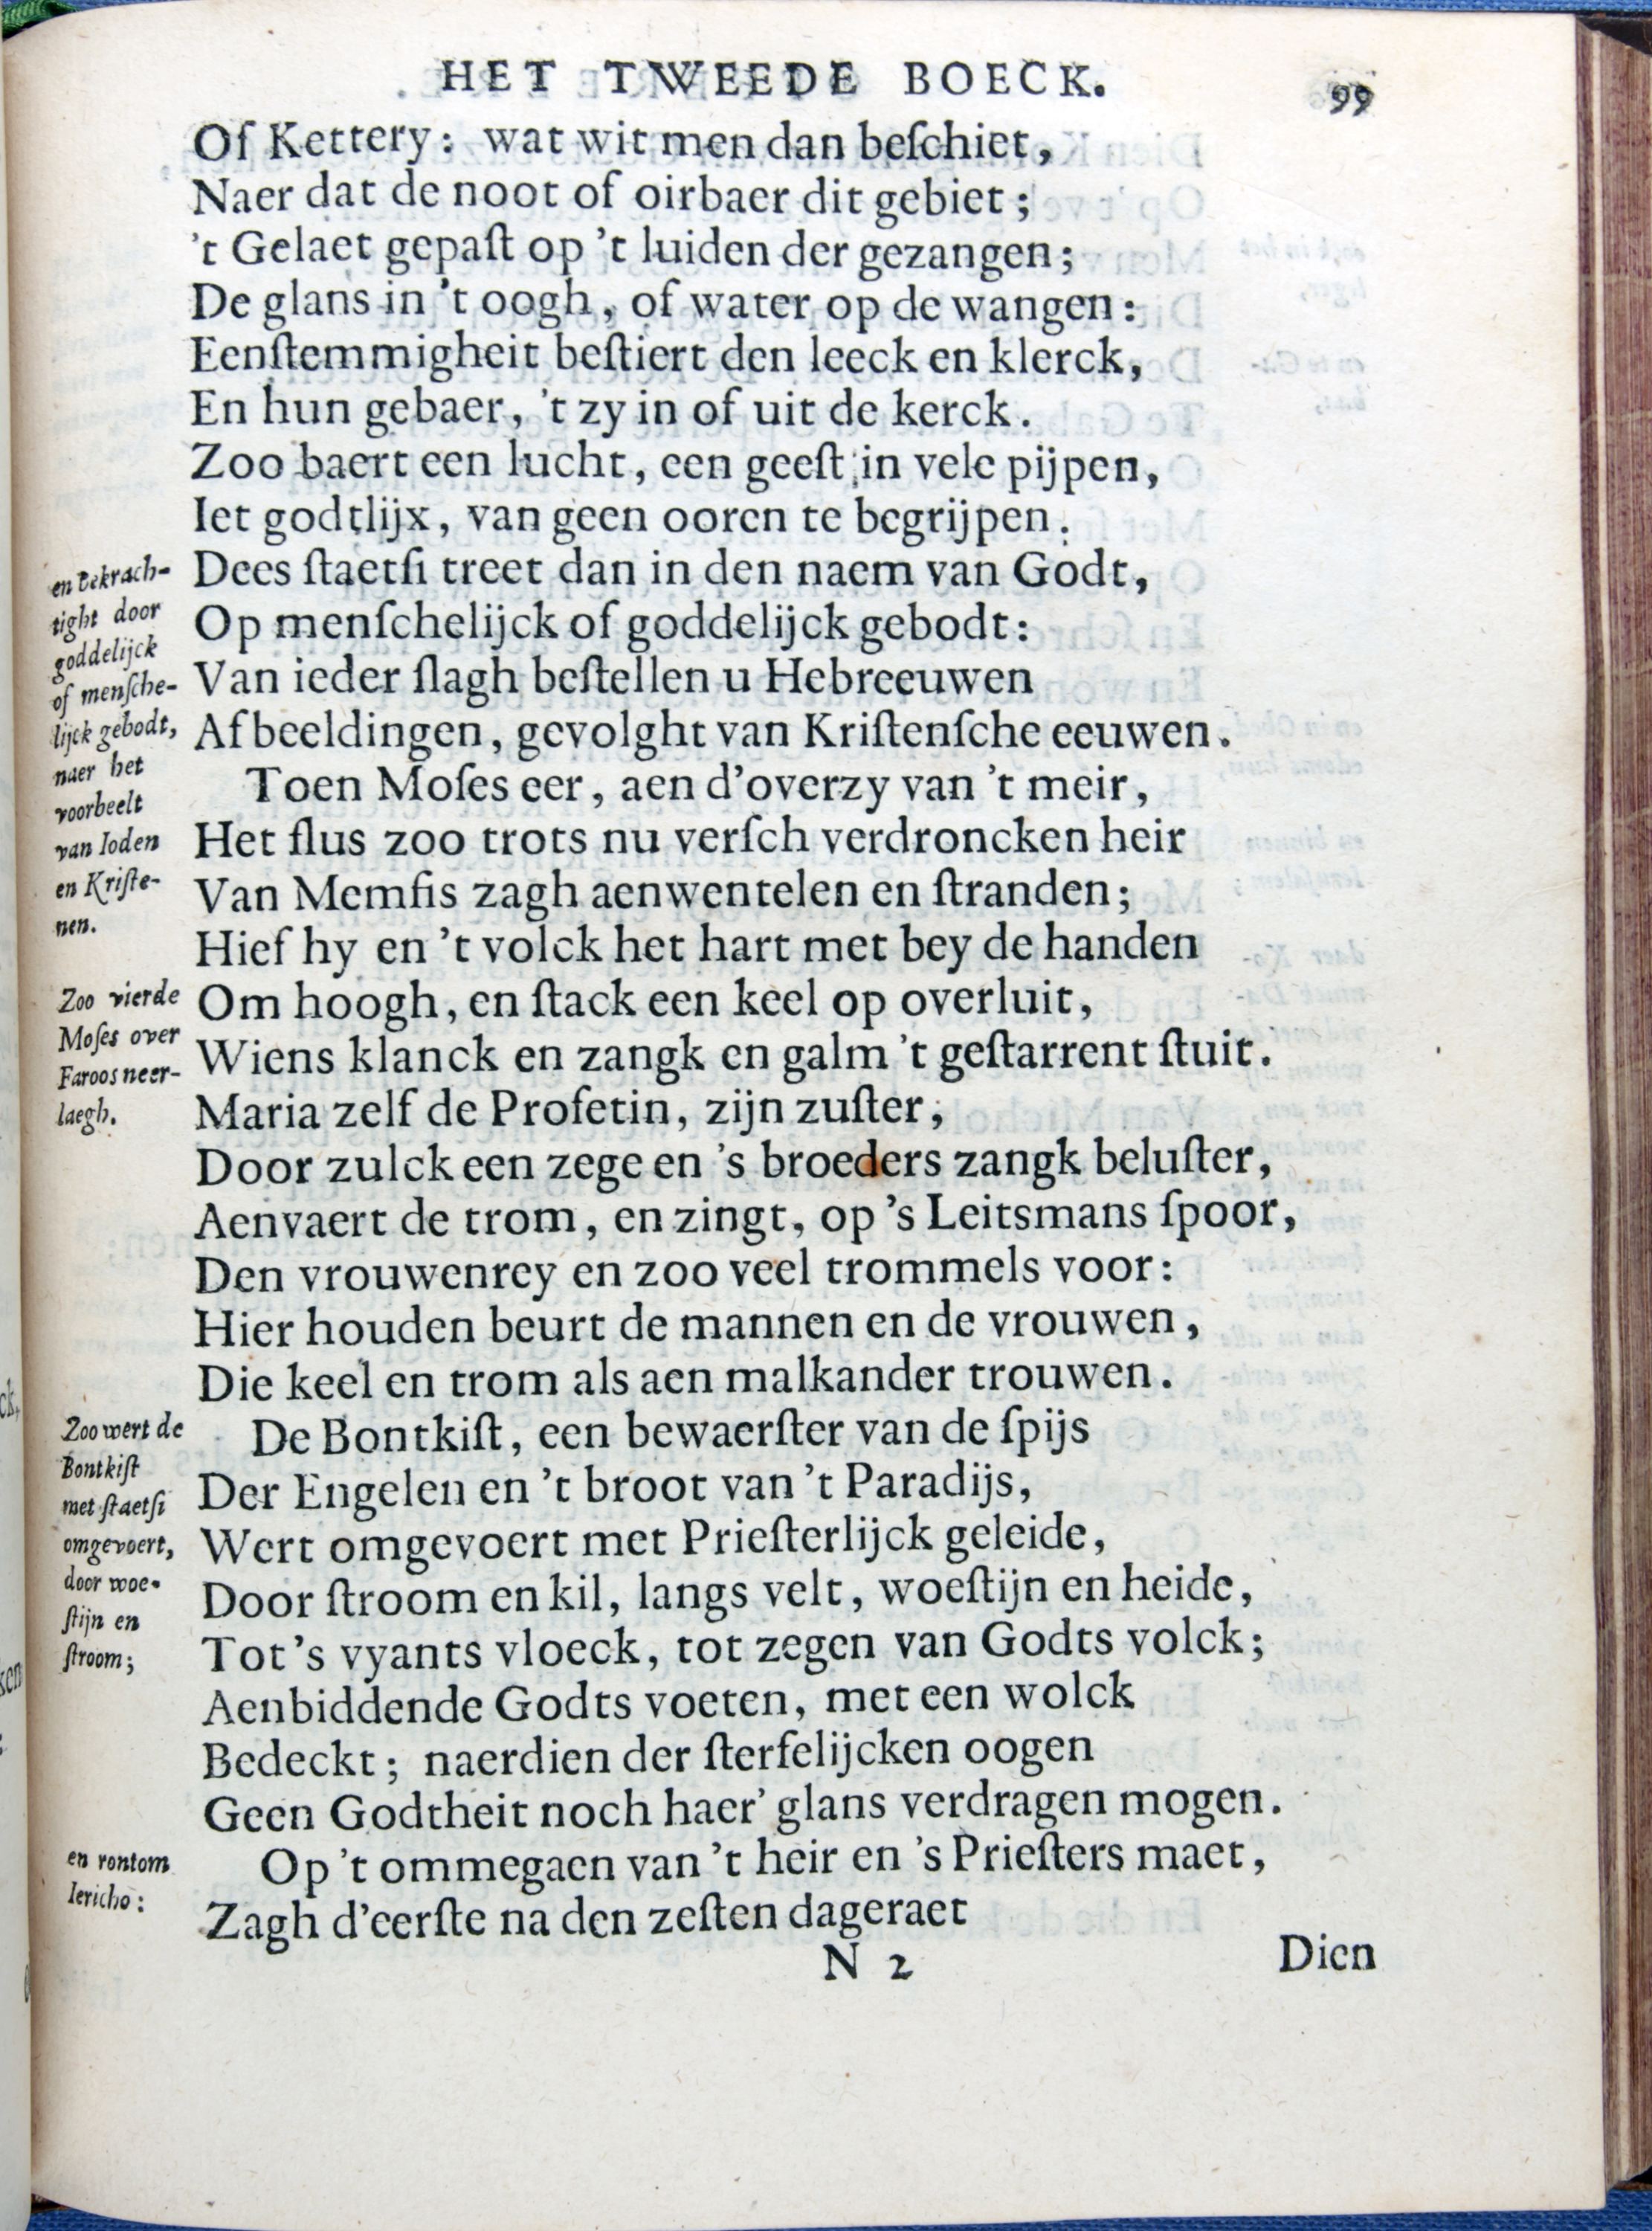 HET TWEEDE BOECK.
99
Of Kettery: wat wit men dan beſchiet,
Naer dat de noot of oirbaer dit gebiet;
't Gelaet gepaſt op 't luiden der gezangen;
De glans in 't oogh, of water op de wangen:
Eenſtemmigheit beſtiert den leeck en klerck,
En hun gebaer, 't zy in of uit de kerck.
Zoo baert een lucht, een geeſt in vele pijpen,
Iet godtlijx, van geen ooren te begrijpen.
Dees ſtaetſi treet dan in den naem van Godt,
Op menſchelijck of goddelijck gebodt:
Van ieder ſlagh beſtellen u Hebreeuwen
Afbeeldingen, gevolght van Kriſtenſche eeuwen.
en bekrach-
tight door
goddelijck
of menſche-
lijck gebodt,
naer het
voorbeelt
van Ioden
en Kriſte-
nen.
Toen Moſes eer, aen d'overzy van 't meir,
Het flus zoo trots nu verſch verdroncken heir
Van Memfis zagh aenwentelen en ſtranden;
Hief hy en 't volck het hart met bey de handen
Om hoogh, en ſtack een keel op overluit,
Wiens klanck en zangk en galm 't geſtarrent ſtuit.
Zoo vierde
Moſes over
Faroos neer-
laegh.
Maria zelf de Profetin, zijn zuſter,
Door zulck een zege en 's broeders zangk beluſter,
Aenvaert de trom, en zingt, op 's Leitsmans ſpoor,
Den vrouwenrey en zoo veel trommels voor:
Hier houden beurt de mannen en de vrouwen,
Die keel en trom als aen malkander trouwen.
De Bontkiſt, een bewaerſter van de ſpijs
Der Engelen en 't broot van 't Paradijs,
Wert omgevoert met Prieſterlijck geleide,
Door ſtroom en kil, langs velt, woeſtijn en heide,
Tot 's vyants vloeck, tot zegen van Godts volck;
Zoo wert de
Bontkiſt
met ſtaetſi
omgevoert,
door woe-
ſtijn en
ſtroom;
Aenbiddende Godts voeten, met een wolck
Bedeckt; naerdien der ſterfelijcken oogen
Geen Godtheit noch haer' glans verdragen mogen.
Op 't ommegaen van 't heir en 's Prieſters maet,
Zagh d'eerſte na den zeſten dageraet
en rontom
Iericho:
N 2
Dien